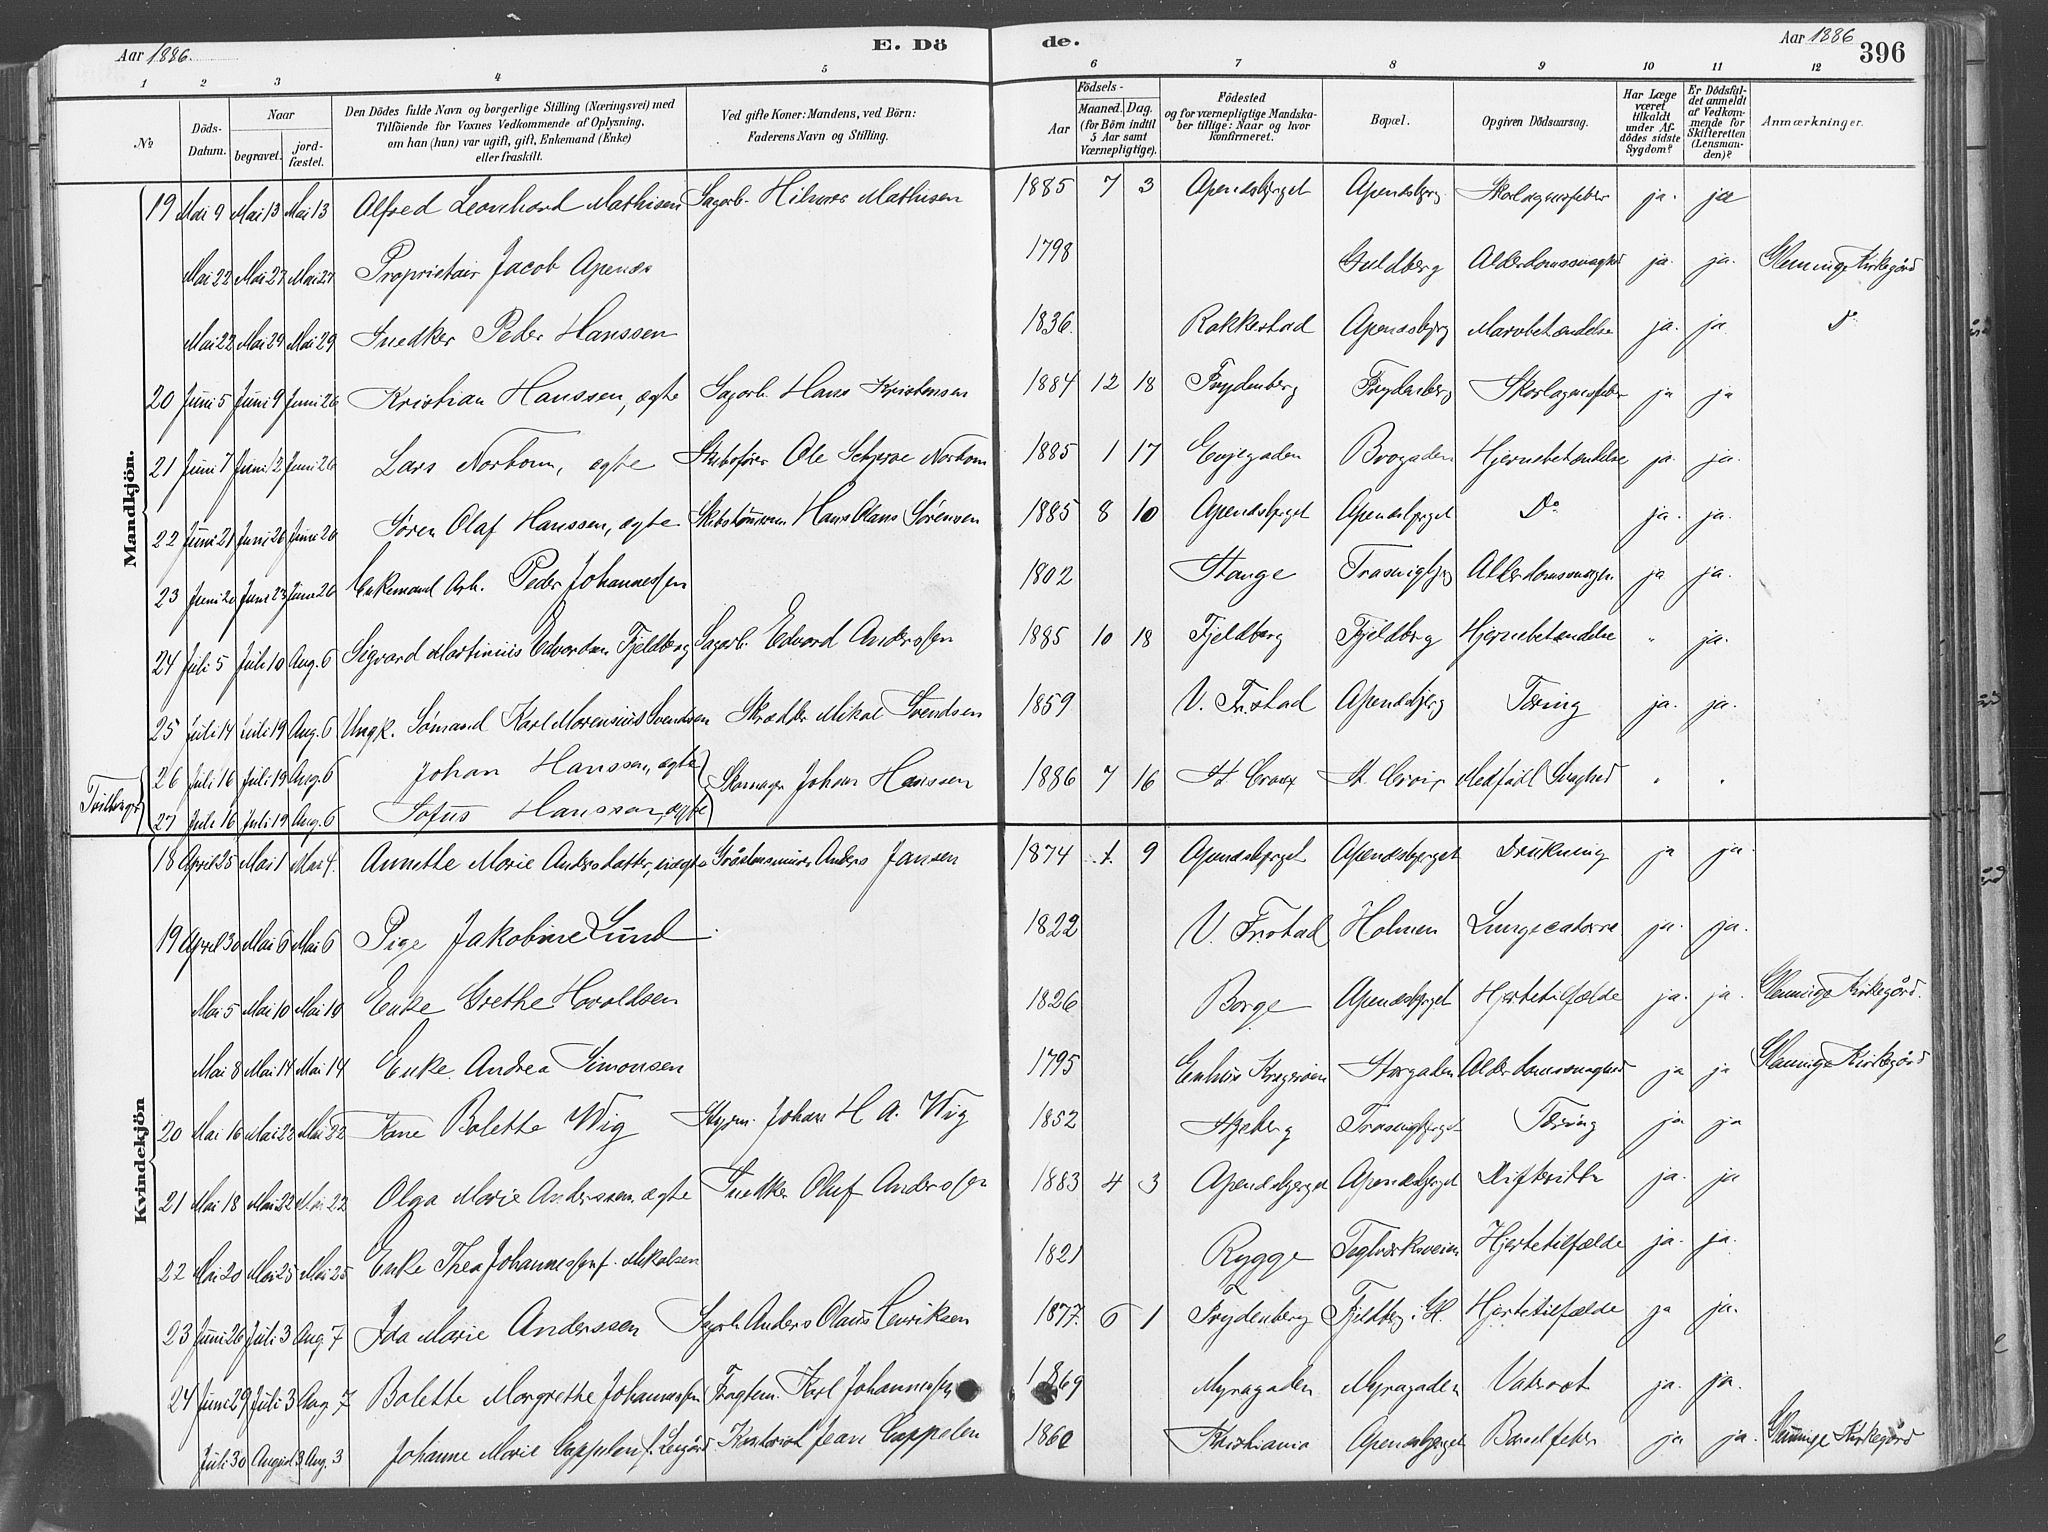 Aar 1886. E. Dö de. Aar 1886 396
1 2 3 4 5 6 7 8 9 10 11 12
№ Döds-Datum. Naar begravet. jordfæstet. Den Dödes fulde Navn og borgerlige Stilling (Næringsvei) med Tilföiende for Voxnes Vedkommende af Oplysning, om han (hun) var ugift, gift, Enkemand (Enke) eller fraskilt. Ved gifte Koner: Mandens, ved Börn: Faderens Navn og Stilling. Aar Födsels- Maaned. Dag. (for Börn indtil 5 Aar samt Værnepligtige). Födested og for værnepligtige Mandskaber tillige: Naar og hvor konfirmeret. Bopæl. Opgiven Dödsaarsag. Har Læge været tilkaldt under Afdödes sidste Sygdom? Er Dödsfaldet anmeldt af Vedkommende for Skifteretten (Lensmanden)? Anmærkninger.
Mandkjön.
19 Mai 9 Mai 13 Mai 13 Alfred Leonhard Mathisen Sagarb. Hilmar Mathisen 1885 7 3 Apenæsbjerget Apenæsbjerg Skarlagensfeber ja. ja
Mai 22 Mai 27 Mai 27 Proprietair Jacob Apenæs 1798 Guldberg Alderdomssvaghed ja. ja. Glemminge Kirkegård
Mai 22 Mai 29 Mai 29 Snedker Peder Hanssen 1836. Rakkestad Apenæsbjerg Marvbetændelse ja. ja. Do
20 Juni 5 Juni 9 Juni 26 Kristian Hanssen, ægte Sagarb. Hans Kristensen 1884 12 18 Frydenberg Frydenberg Skarlagensfeber ja ja
21 Juni 7 Juni 12 Juni 26 Lars Norbom, ægte Skibsfører Ole Norbom 1885 1 17 Engegaden Brogaden Hjernebetændelse ja. ja.
22 Juni 21 Juni 26 Juni 26 Sören Olaf Hanssen, ægte Skibstømmerm. Hans Olaus Sörensen 1885 8 10 Apenæsbjerget Apenæsbjerget Do ja. ja.
23 Juni 20 Juni 23 Juni 26 Enkemand Arb. Peder Johannessen 1802 Stange Trosvigbjerg ja ja.
24 Juli 5 Juli 10 Aug. 6 Sigvard Martinius Edvardsen Fjeldberg Sagarb. Edvard Anderssen 1885 10 18 Fjeldberg Fjeldberg Hjernebetændelse " ja.
25 Juli 14 Juli 19 Aug. 6 Ungk. Sømand Karl Morensius Svendsen Skrædder Mikal Svendsen 1859 V. Fr.stad Apenæsbjerg Tæring ja. ja.
Tvillinger
26 Juli 16 Juli 19 Aug. 6 Johan Hanssen, ægte Skomager Johan Hanssen 1886 7 16 St. Croix St. Croix Medfødt Svaghed " "
27 Juli 16 Juli 19 Aug. 6 Sofus Hanssen, ægte
Kvindekjön
18 April 25 Mai 1 Mai 4. Annette Marie Andersdatter, uægte Gråstensminer Anders Jansen 1874 1. 9 Apenæsbjerget Apenæsbjerget Drukning ja ja.
19 April 30 Mai 6 Mai 6 Pige Jakobine Lund 1822 V. Fr.stad Holmen Lungecatarrh ja. ja.
Mai 5 Mai 10 Mai 10 Enke Grethe Haraldsen 1826 Borge Apenæsbjerget Hjertetilfælde ja. ja. Glemminge Kirkegård.
Mai 8 Mai 14 Mai 14 Enke Andrea Simonsen 1795 Enhuus Kragerøen Storgaden Alderdomssvaghed ja ja Glemminge Kirkegård
20 Mai 16 Mai 22 Mai 22 Kone Bolette Wig Styrm. Johan H. A. Wig 1852 Skjeberg Trosvigbjerget Tæring ja ja
21 Mai 18 Mai 22 Mai 22 Olga Marie Anderssen, ægte Snedker Oluf Anderssen 1883 4 3 Apenæsbjerget Apenæsbjerget Difteritis ja. ja
22 Mai 20 Mai 25 Mai 25 Enke Thea Johannessen f. Mikalsen 1821 Rygge Teglværksveien Hjertetilfælde ja. ja.
23 Juni 26 Juli 3 Aug. 7 Ida Marie Anderssen Sagarb. Anders Olaus Henriksen 1877. 6 1 Frydenberg Fjeldberg i Gl. Hjertetilfælde ja ja.
24 Juni 29 Juli 3 Aug. 7 Bolette Margrethe Johannessen Fragtem. Karl Johannessen 1869 Myragaden Myragaden Vatersot ja. ja.
Juli 30 August 3 Aug. 3 Johanne Marie Cappelen Jean Cappelen 1860 Kristiania Apenæsbjerget Barselfeber ja ja. Glemminge Kirkegård